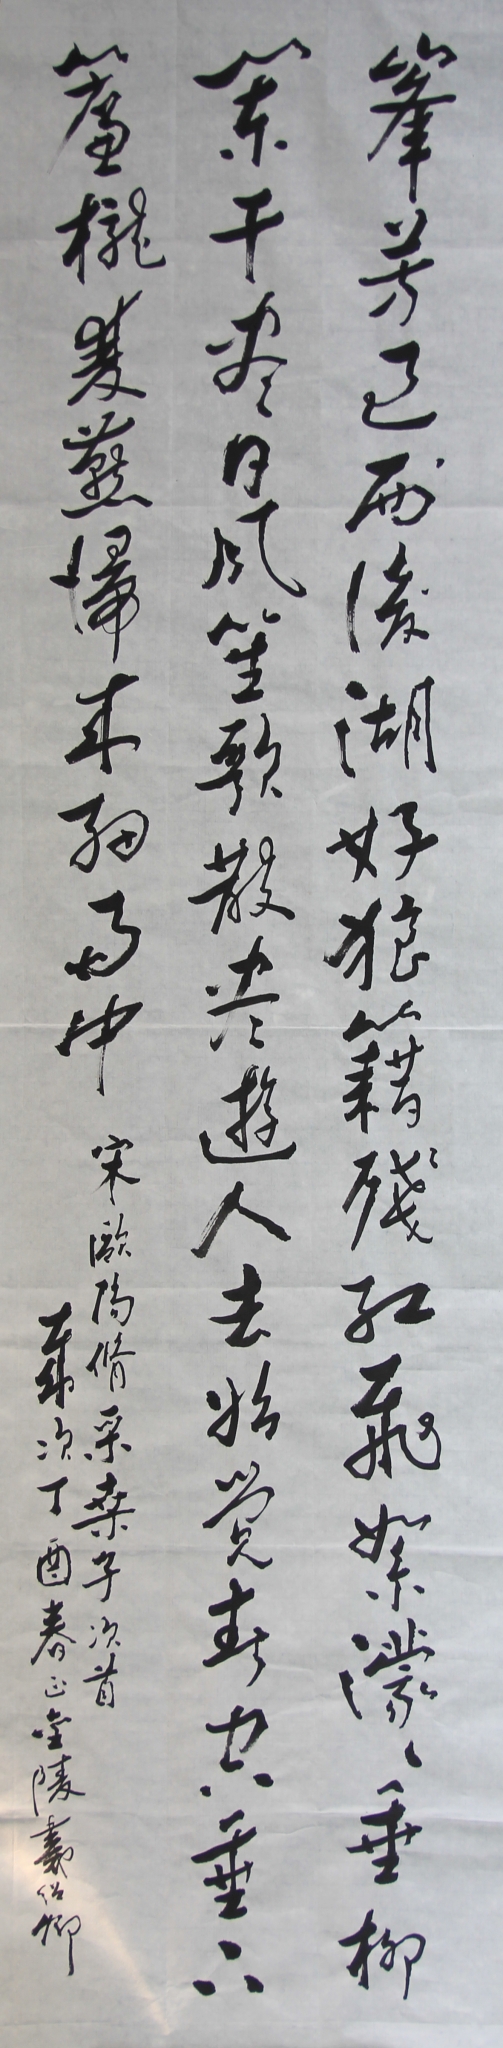 羣芳過西後湖好狼籍殘紅飛絮濛〻垂柳
闌干盡日風笙歌散盡遊人去始覺春空垂下
簾櫳雙燕歸來細雨中
宋歐陽脩采桑子次首
歲次丁酉春正金陵戴